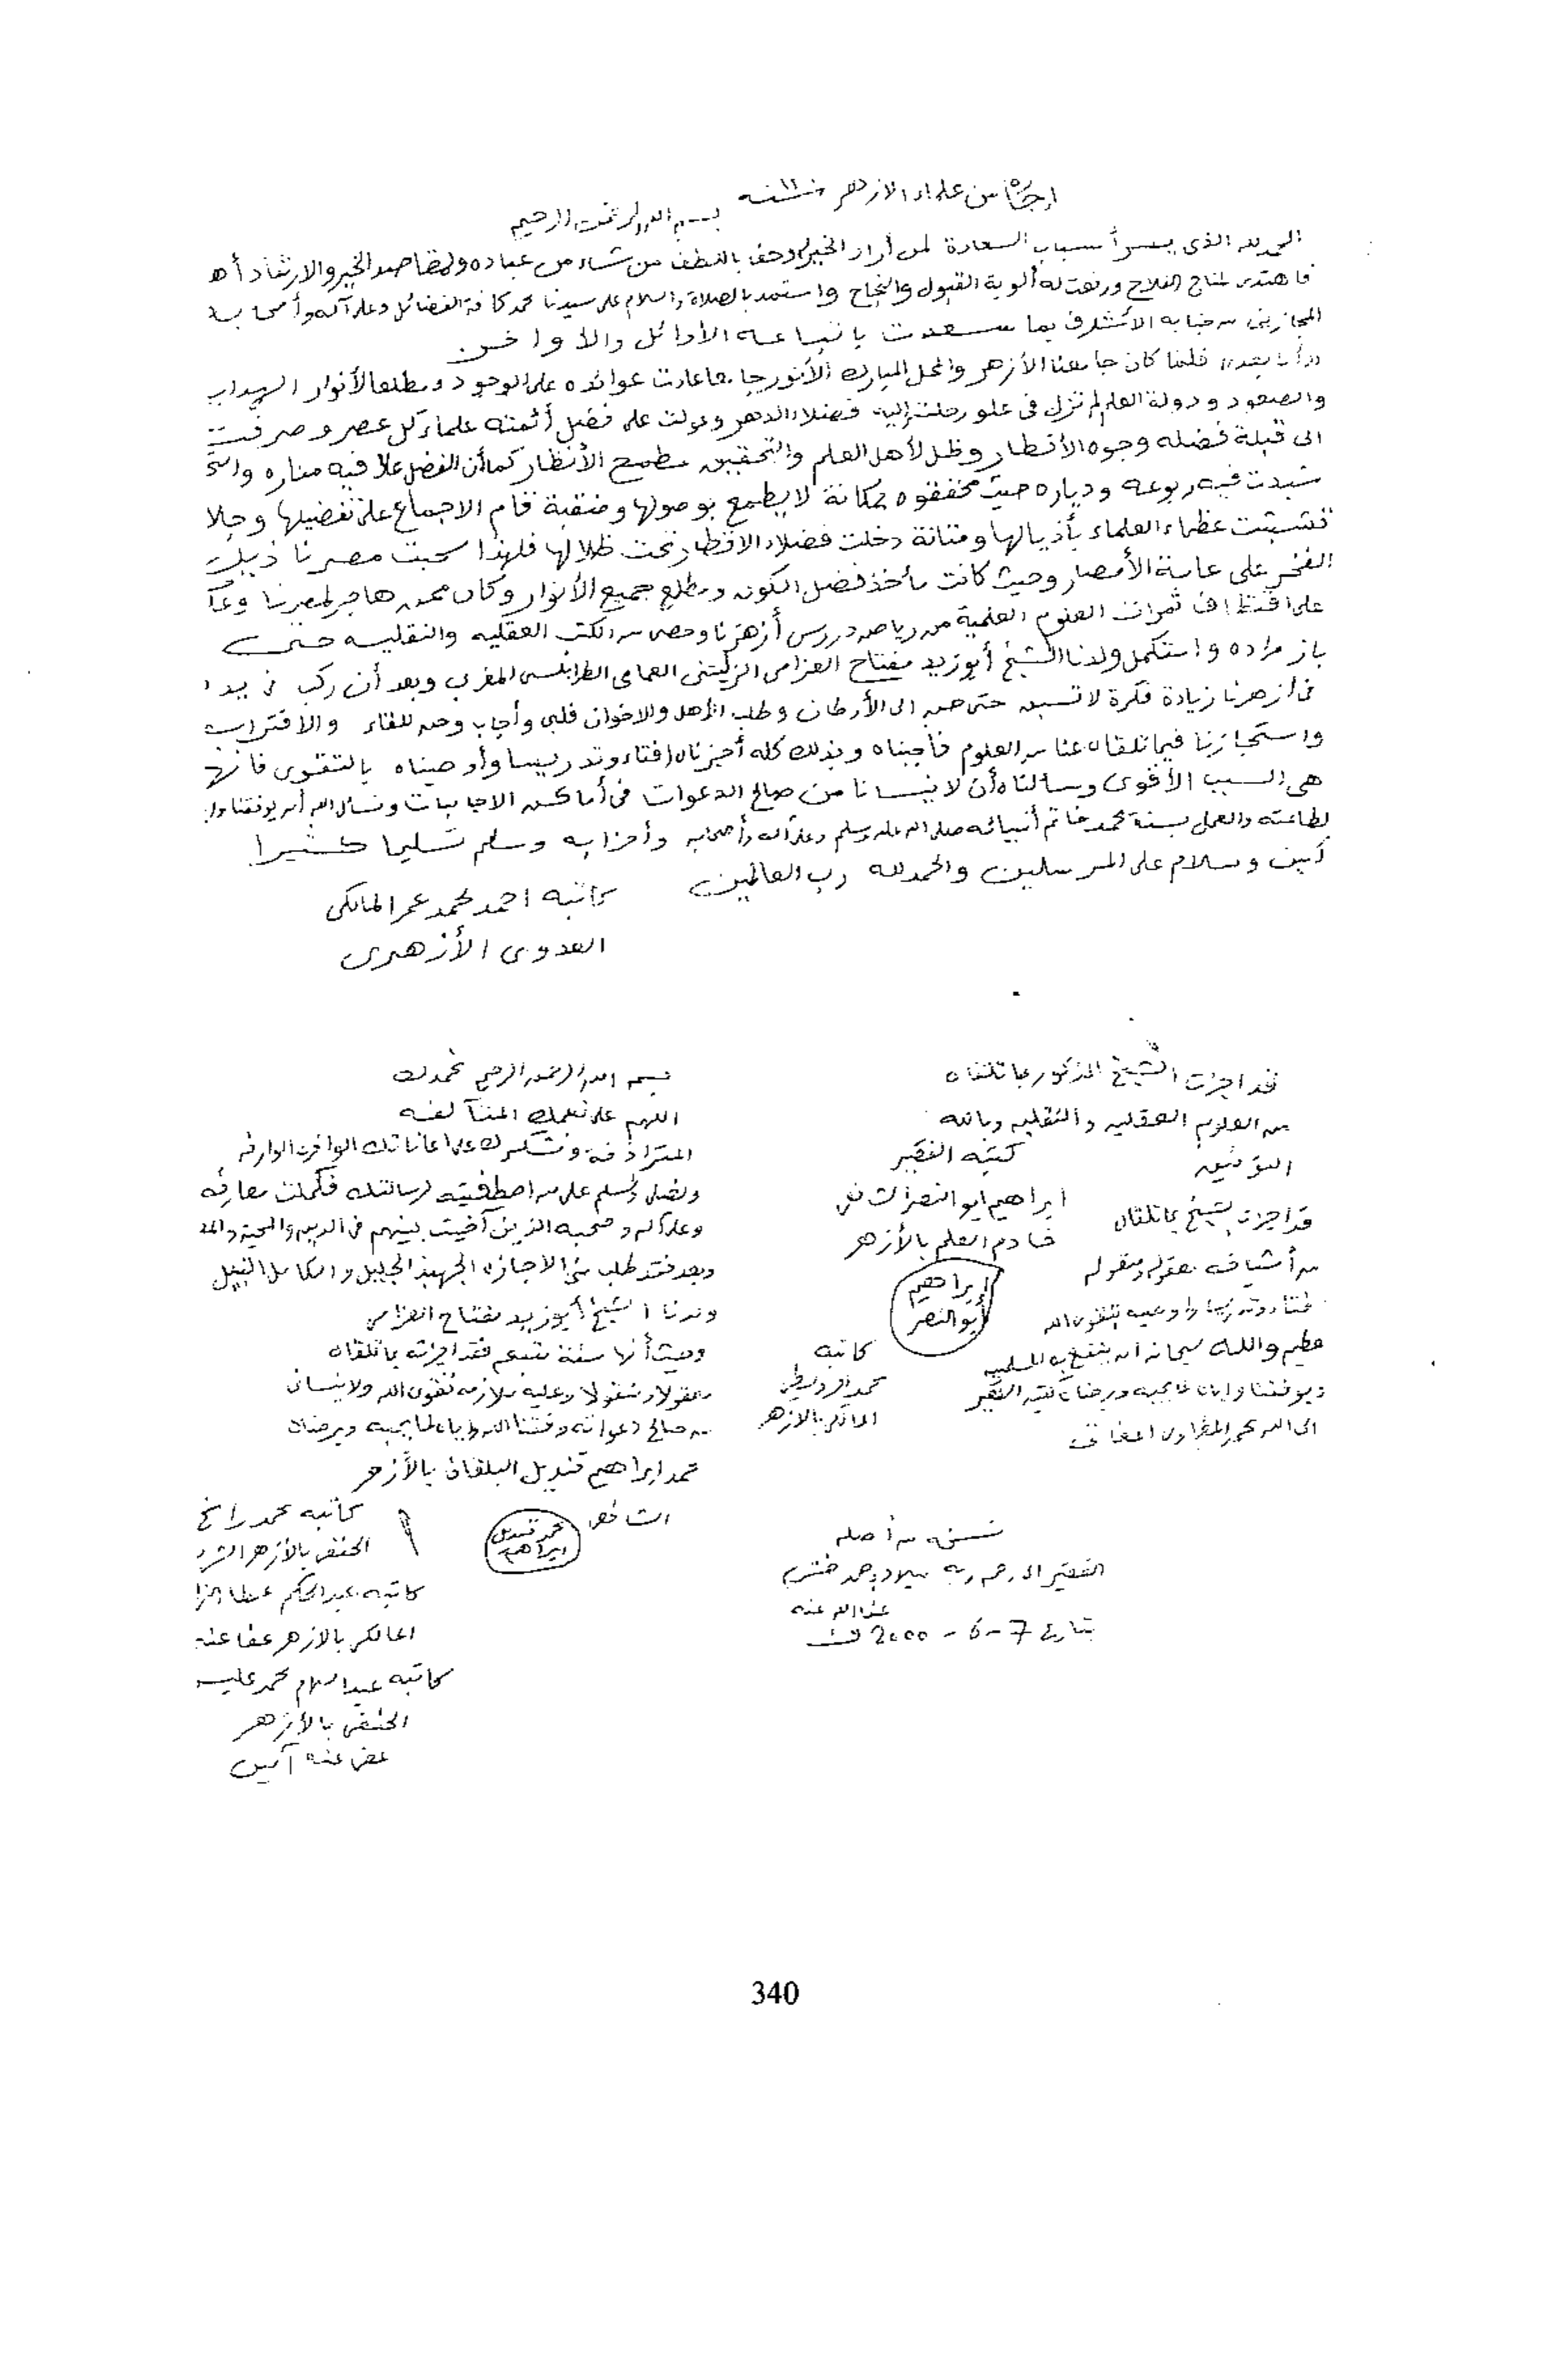 إجازة من علماء الازهر
بسم الله الرحمن الرحيم
الحمد لله الذى يسر أسباب السعادة لمن أراد الخير وحف باللطف من شاء من عباده ولمقاصد الخير والارشاد أهـ
فاهتدى لمناج الفلاح ورفعت له ألوية القبول والنجاح واستمد بالصلاة والسلام على سيدنا محمد كافة الفضائل وعلى آله وأصحابه
المجازين من جنابه الأشرف بما سعدت باتباعه الأوائل والأواخر
وأما بعد فلما كان جامعنا الأزهر والمحل المبارك الأنور جامعا عادت عوائده على الوجود ومطلعا لأنوار
والصعود ودولة العلم لم تزل فى علو رحلت إليه فضلاء الدهر وعولت على فضل أئمته علماء كل عصر وصرفت
الى قبلة فضله وجوه الأقطار وظل لأهل العلم والتحقيق مطمح الأنظار كما أن الفضل علا فيه مناره
شيدت فيه ربوعه ودياره حيث محققوه بمكانة لا يطمع بوصولها ومنقبة قام الاجماع على تفضيلها وجلا
تشبثت عظماء العلماء بأذيالها ومتانة دخلت فضلاء الاقطار تحت ظلالها فلهذا سحبت مصرنا ذيل
الفخر على عامة الأمصار وحيث كانت مأخذ فضل الكون ومطلع جميع الأنوار وكان ممن هاجر لمصرنا
على اقتطاف ثمرات العلوم العلمية من رياض دروس أزهرنا وحصل من الكتب العقليه والنقليه حتى
باز مراده واستكمل ولدنا الشيخ أبوزيد مفتاح العزامى الزليتنى العمامى الطرابلسى المغربى وبعد أن ركب فى
فى ازهرنا زيادة فكرة لا تسبق حتى حن الى الأوطان وطلب الأهل والاخوان فلبى وأجاب وحن للقاء والاقتراب
واستجازنا فيما تلقاه عنا من العلوم فأجبناه وبذلك كله أجزناه إفتاء وتدريسا وأوصيناه بالتقوى فانها
هى السبب الأقوى وسألناه أن لا ينسانا من صالح الدعوات فى أماكن الاجابات ونسأل الله أن يوفقنا
لطاعته والعمل بسنة محمد خاتم أنبيائه صلى الله عليه وسلم وعلى آله وأصحابه وأحزابه وسلم تسليما كثيرا
آمين وسلام على المرسلين والحمد لله رب العالمين
كاتبه احمد محمد عمر المالكى
العدوى الأزهرى
قد اجزت الشيخ المذكور بما تلقاه
من العلوم العقليه والنقليه وبالله
التوفيق
كتبه الفقير
ابراهيم ابوالنصر الشافعى
خادم العلم بالأزهر
إبراهيم
أبوالنصر
قد اجزت الشيخ بما تلقاه
من أشياخه معقول ومنقول
العظيم والله سبحانه أن ينفع به المسلمين
ويوفقنا وإياه لما يحبه ويرضاه كتبه الفقير
الى الله
كاتبه
محمد
المالكى بالازهر
بسم الله الرحمن الرحيم نحمدك
اللهم على نعمك المتآلفه
المترادفة ونشكرك على اعاناتك الوافرة الوارفه
ونصلى ونسلم على من اصطفيته لرسالتك فكملت معارفه
وعلى آله وصحبه الذين آخيت بينهم فى الدين والمحبة
وبعد فقد طلب منى الاجازة الجهبذ الجليل والكامل النبيل
ولدنا الشيخ أبوزيد مفتاح العزامى
وحيث أنها سنة تتبع فقد اجزته بما تلقاه
معقولا ومنقولا وعليه ملازمة تقوى الله ولا ينسانى
من صالح دعواته وفقنا الله وإياه لما يحبه ويرضاه
محمد ابراهيم قنديل البلقانى بالأزهر
الشافعى
محمد قنديل
ابراهيم
كاتبه محمد راضى
الحنفى بالأزهر
كاتبه عبدالحكم عطا
المالكى بالازهر عفا عنه
كاتبه عبدالسلام محمد
الحنفى بالأزهر
عفى عنه آمين
نسخه من أصله
الفقير الى رحمة ربه ميلاد
عفا الله عنه
بتاريخ 7 - 6 - 2000
340